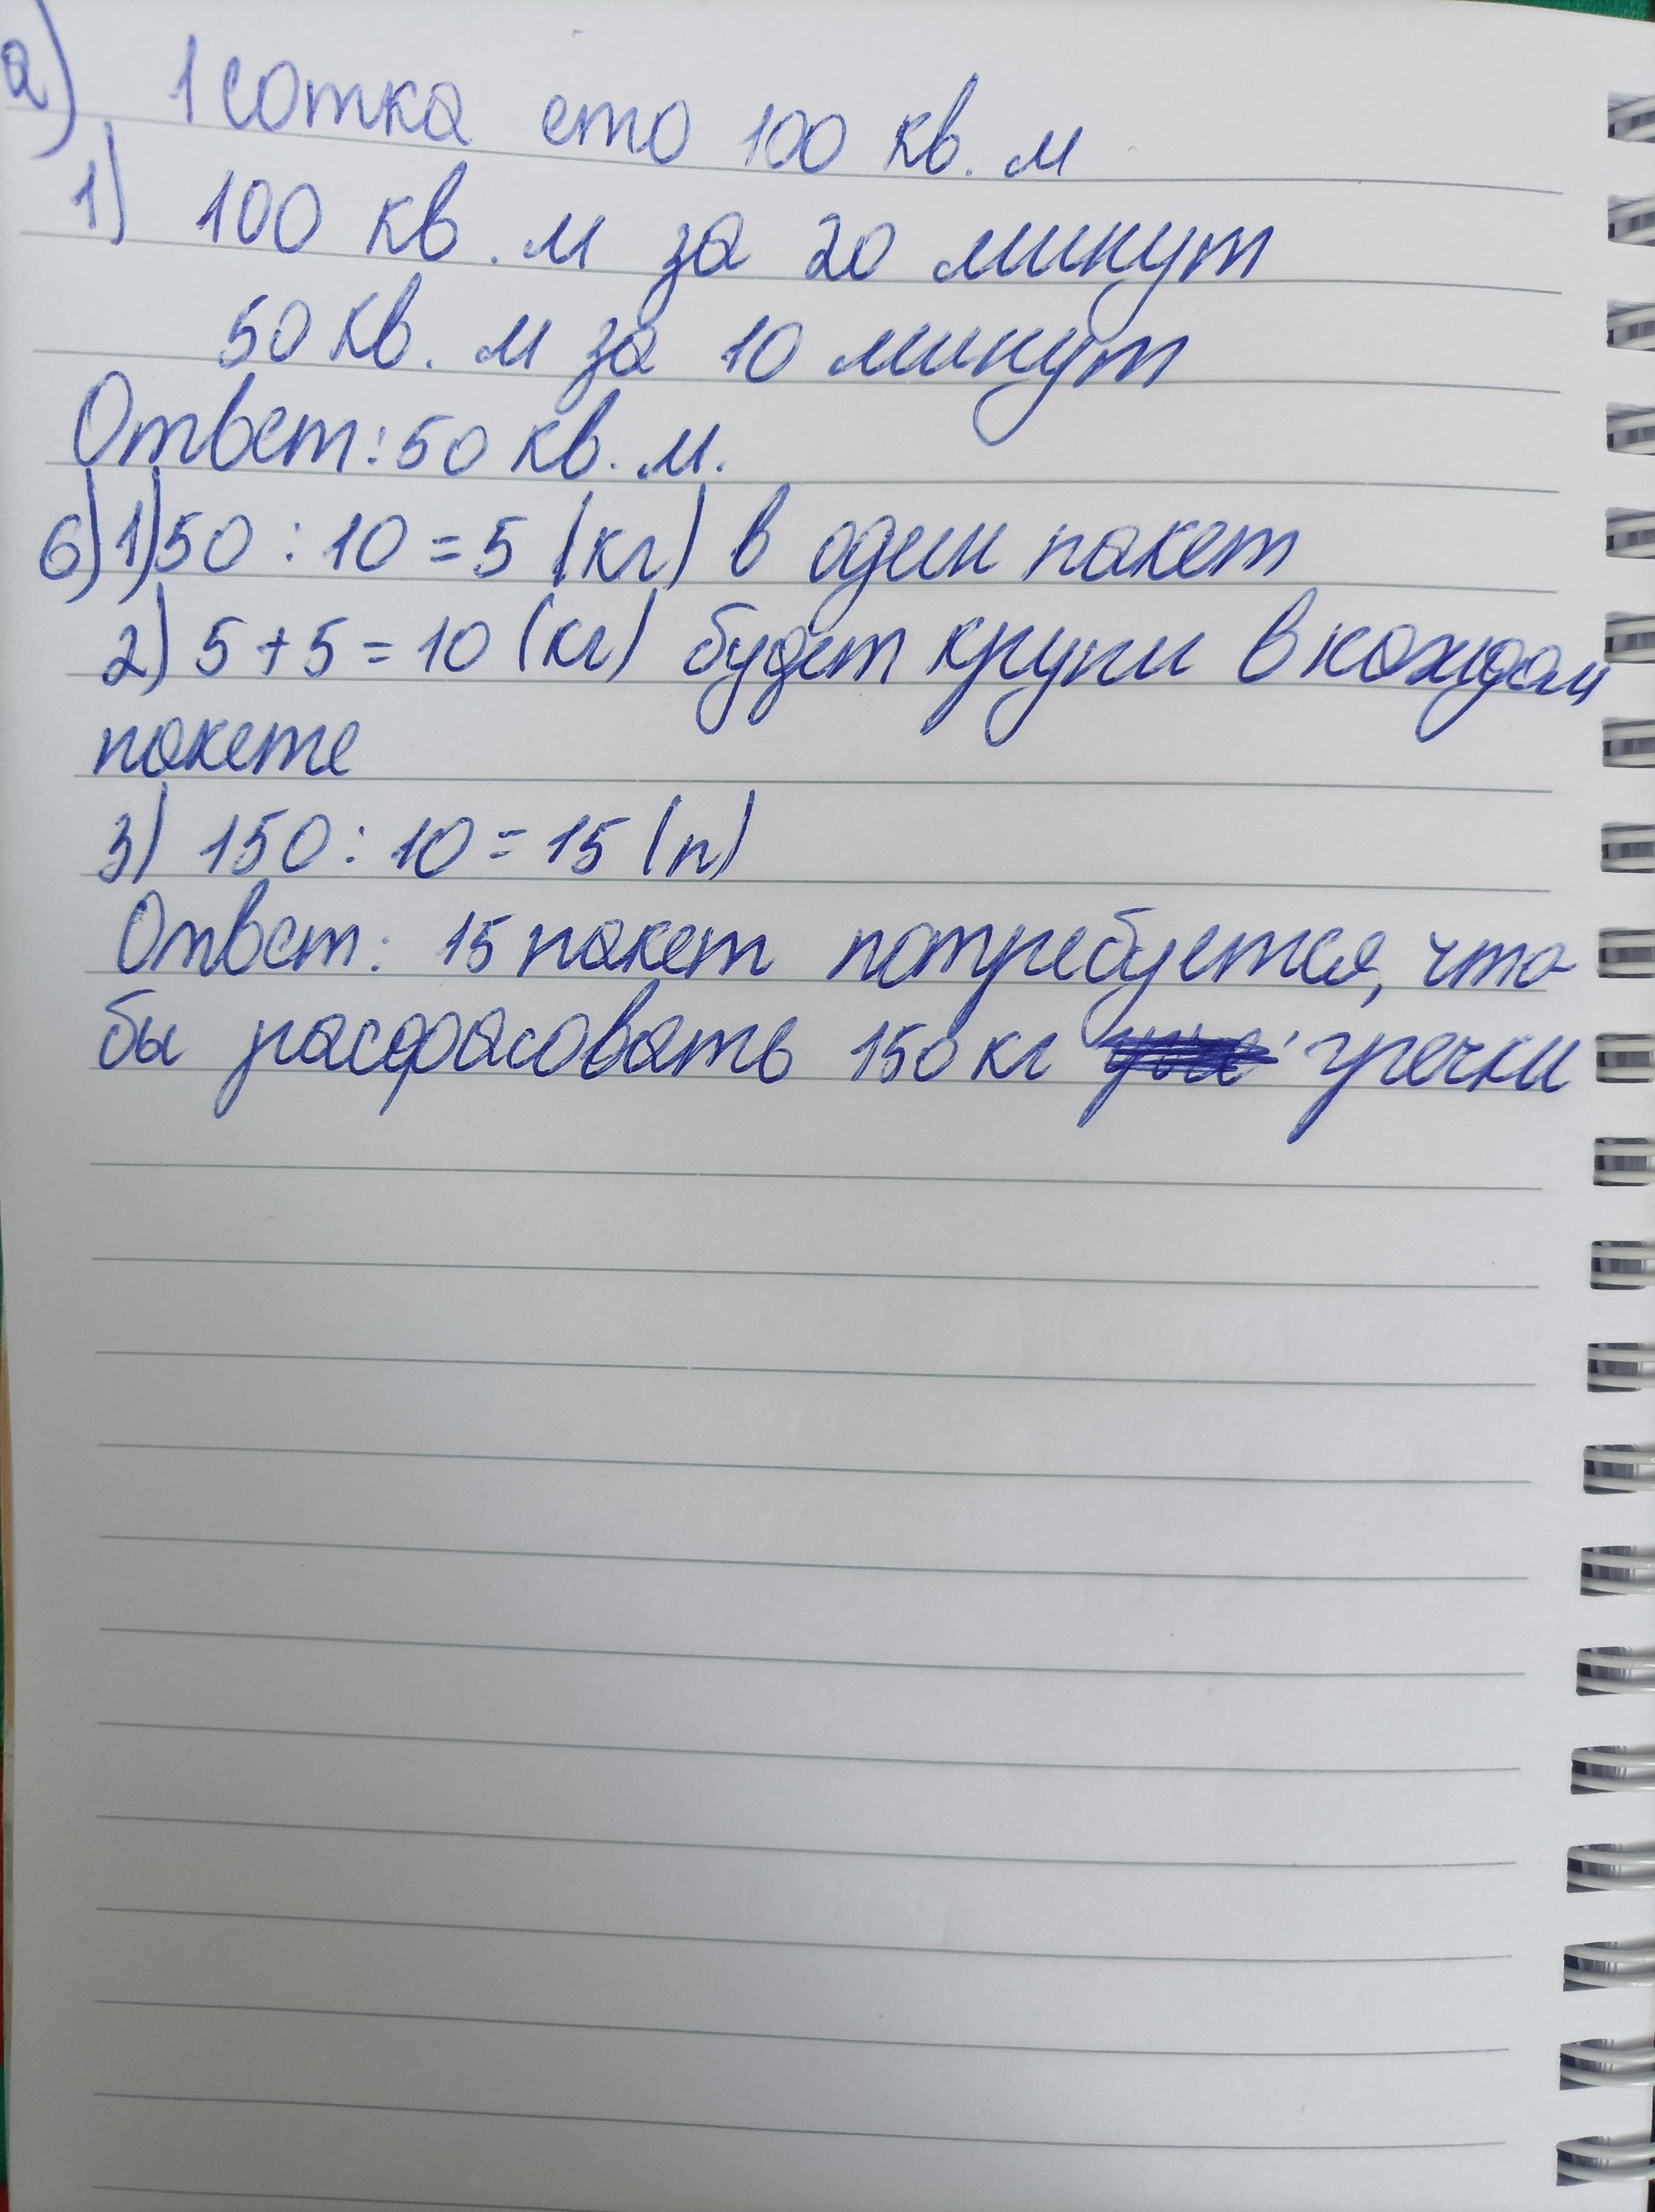 а) 1 сотка ето 100 кв. м
1) 100 кв. м за 20 минут
50 кв. м за 10 минут
Ответ: 50 кв. м.
б) 1) 50 : 10 = 5 (кг) в один пакет
2) 5 + 5 = 10 (кг) будет крупы в каждом
пакете
3) 150 : 10 = 15 (п)
Ответ: 15 пакет потребуется, что
бы расфасовать 150 кг гречки